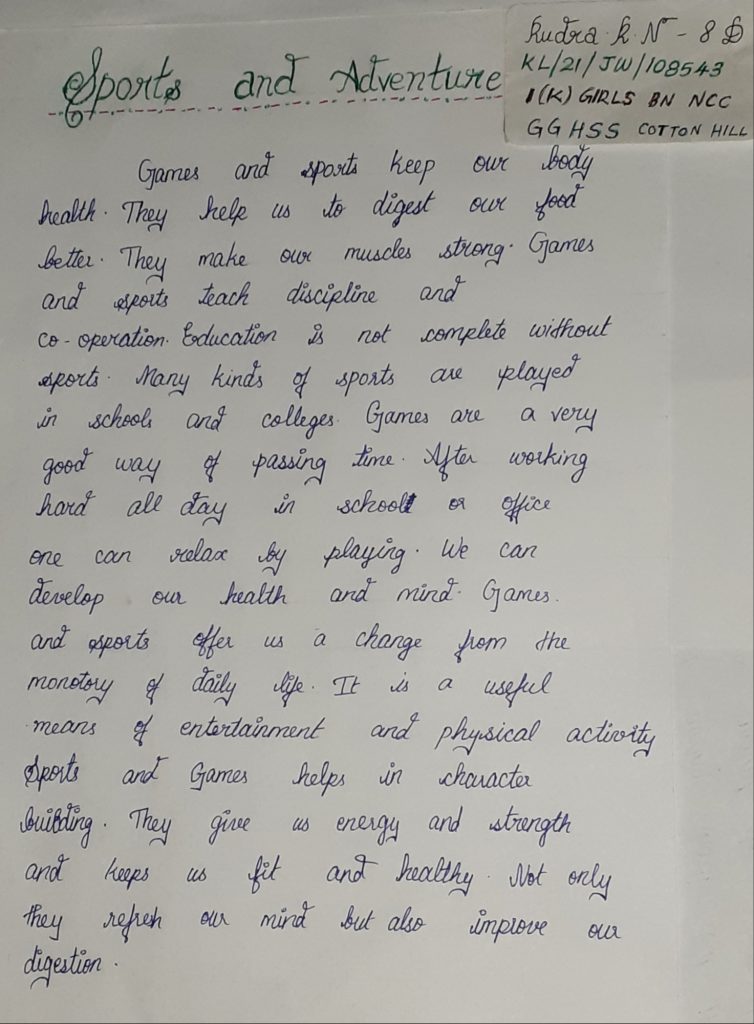 Rudra R N - 8 D
KL/21/JW/108543
1(K) GIRLS BN NCC
GGHSS COTTON HILL
Sports and Adventure
Games and sports keep our body
health. They help us to digest our food
better. They make our muscles strong. Games
and sports teach discipline and
co-operation. Education is not complete without
sports. Many kinds of sports are played
in schools and colleges. Games are a very
good way of passing time. After working
hard all day in school or office
one can relax by playing. We can
develop our health and mind. Games.
and sports offer us a change from the
monotory of daily life. It is a useful
means of entertainment and physical activity
Sports and Games helps in character
building. They give us energy and strength
and keeps us fit and healthy. Not only
they refresh our mind but also improve our
digestion.